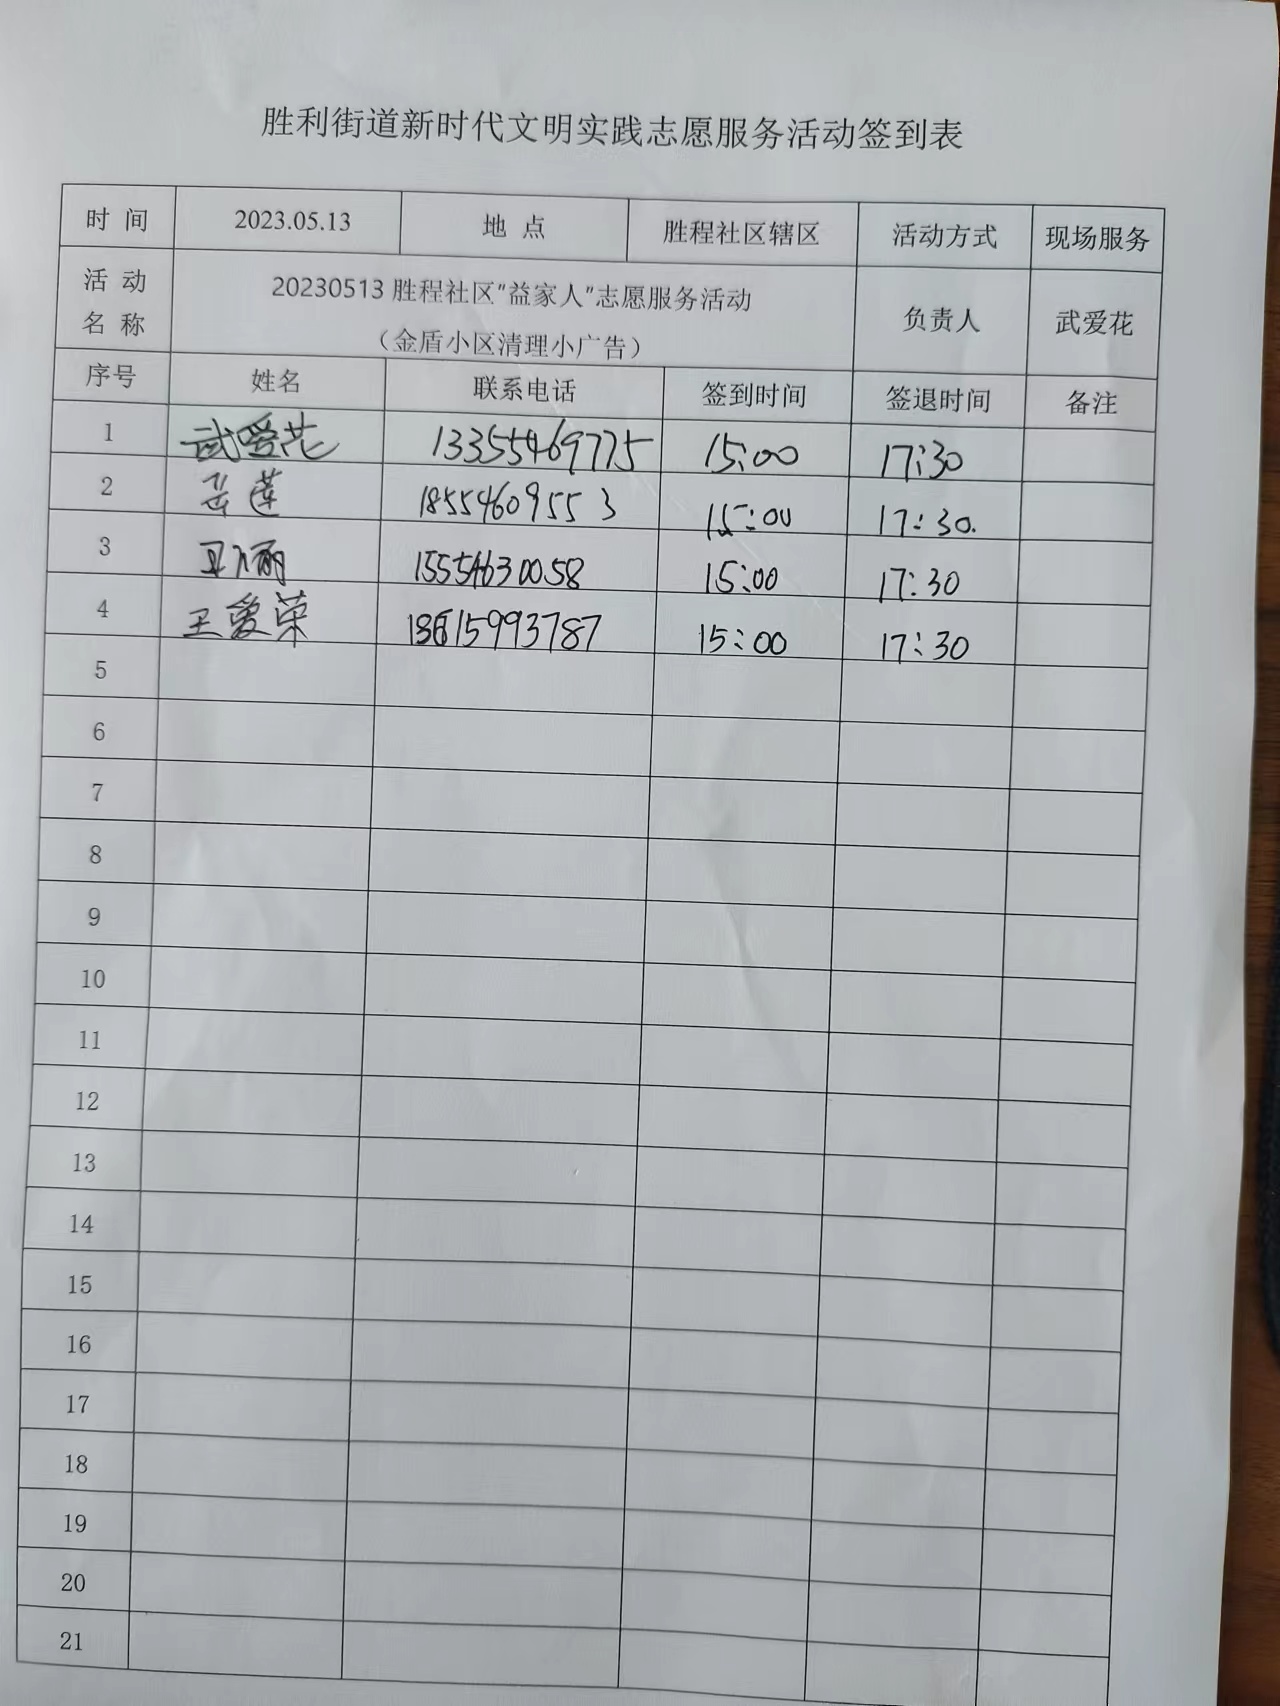 胜利街道新时代文明实践志愿服务活动签到表
时 间 2023.05.13 地 点 胜程社区辖区 活动方式 现场服务
活 动 名 称 20230513 胜程社区"益家人"志愿服务活动
（金盾小区清理小广告） 负责人 武爱花
序号 姓名 联系电话 签到时间 签退时间 备注
1 武爱花 13355469775 15:00 17:30
2 莲 18554609553 15:00 17:30.
3 丽 15554630058 15:00 17:30
4 王爱荣 15993787 15:00 17:30
5
6
7
8
9
10
11
12
13
14
15
16
17
18
19
20
21